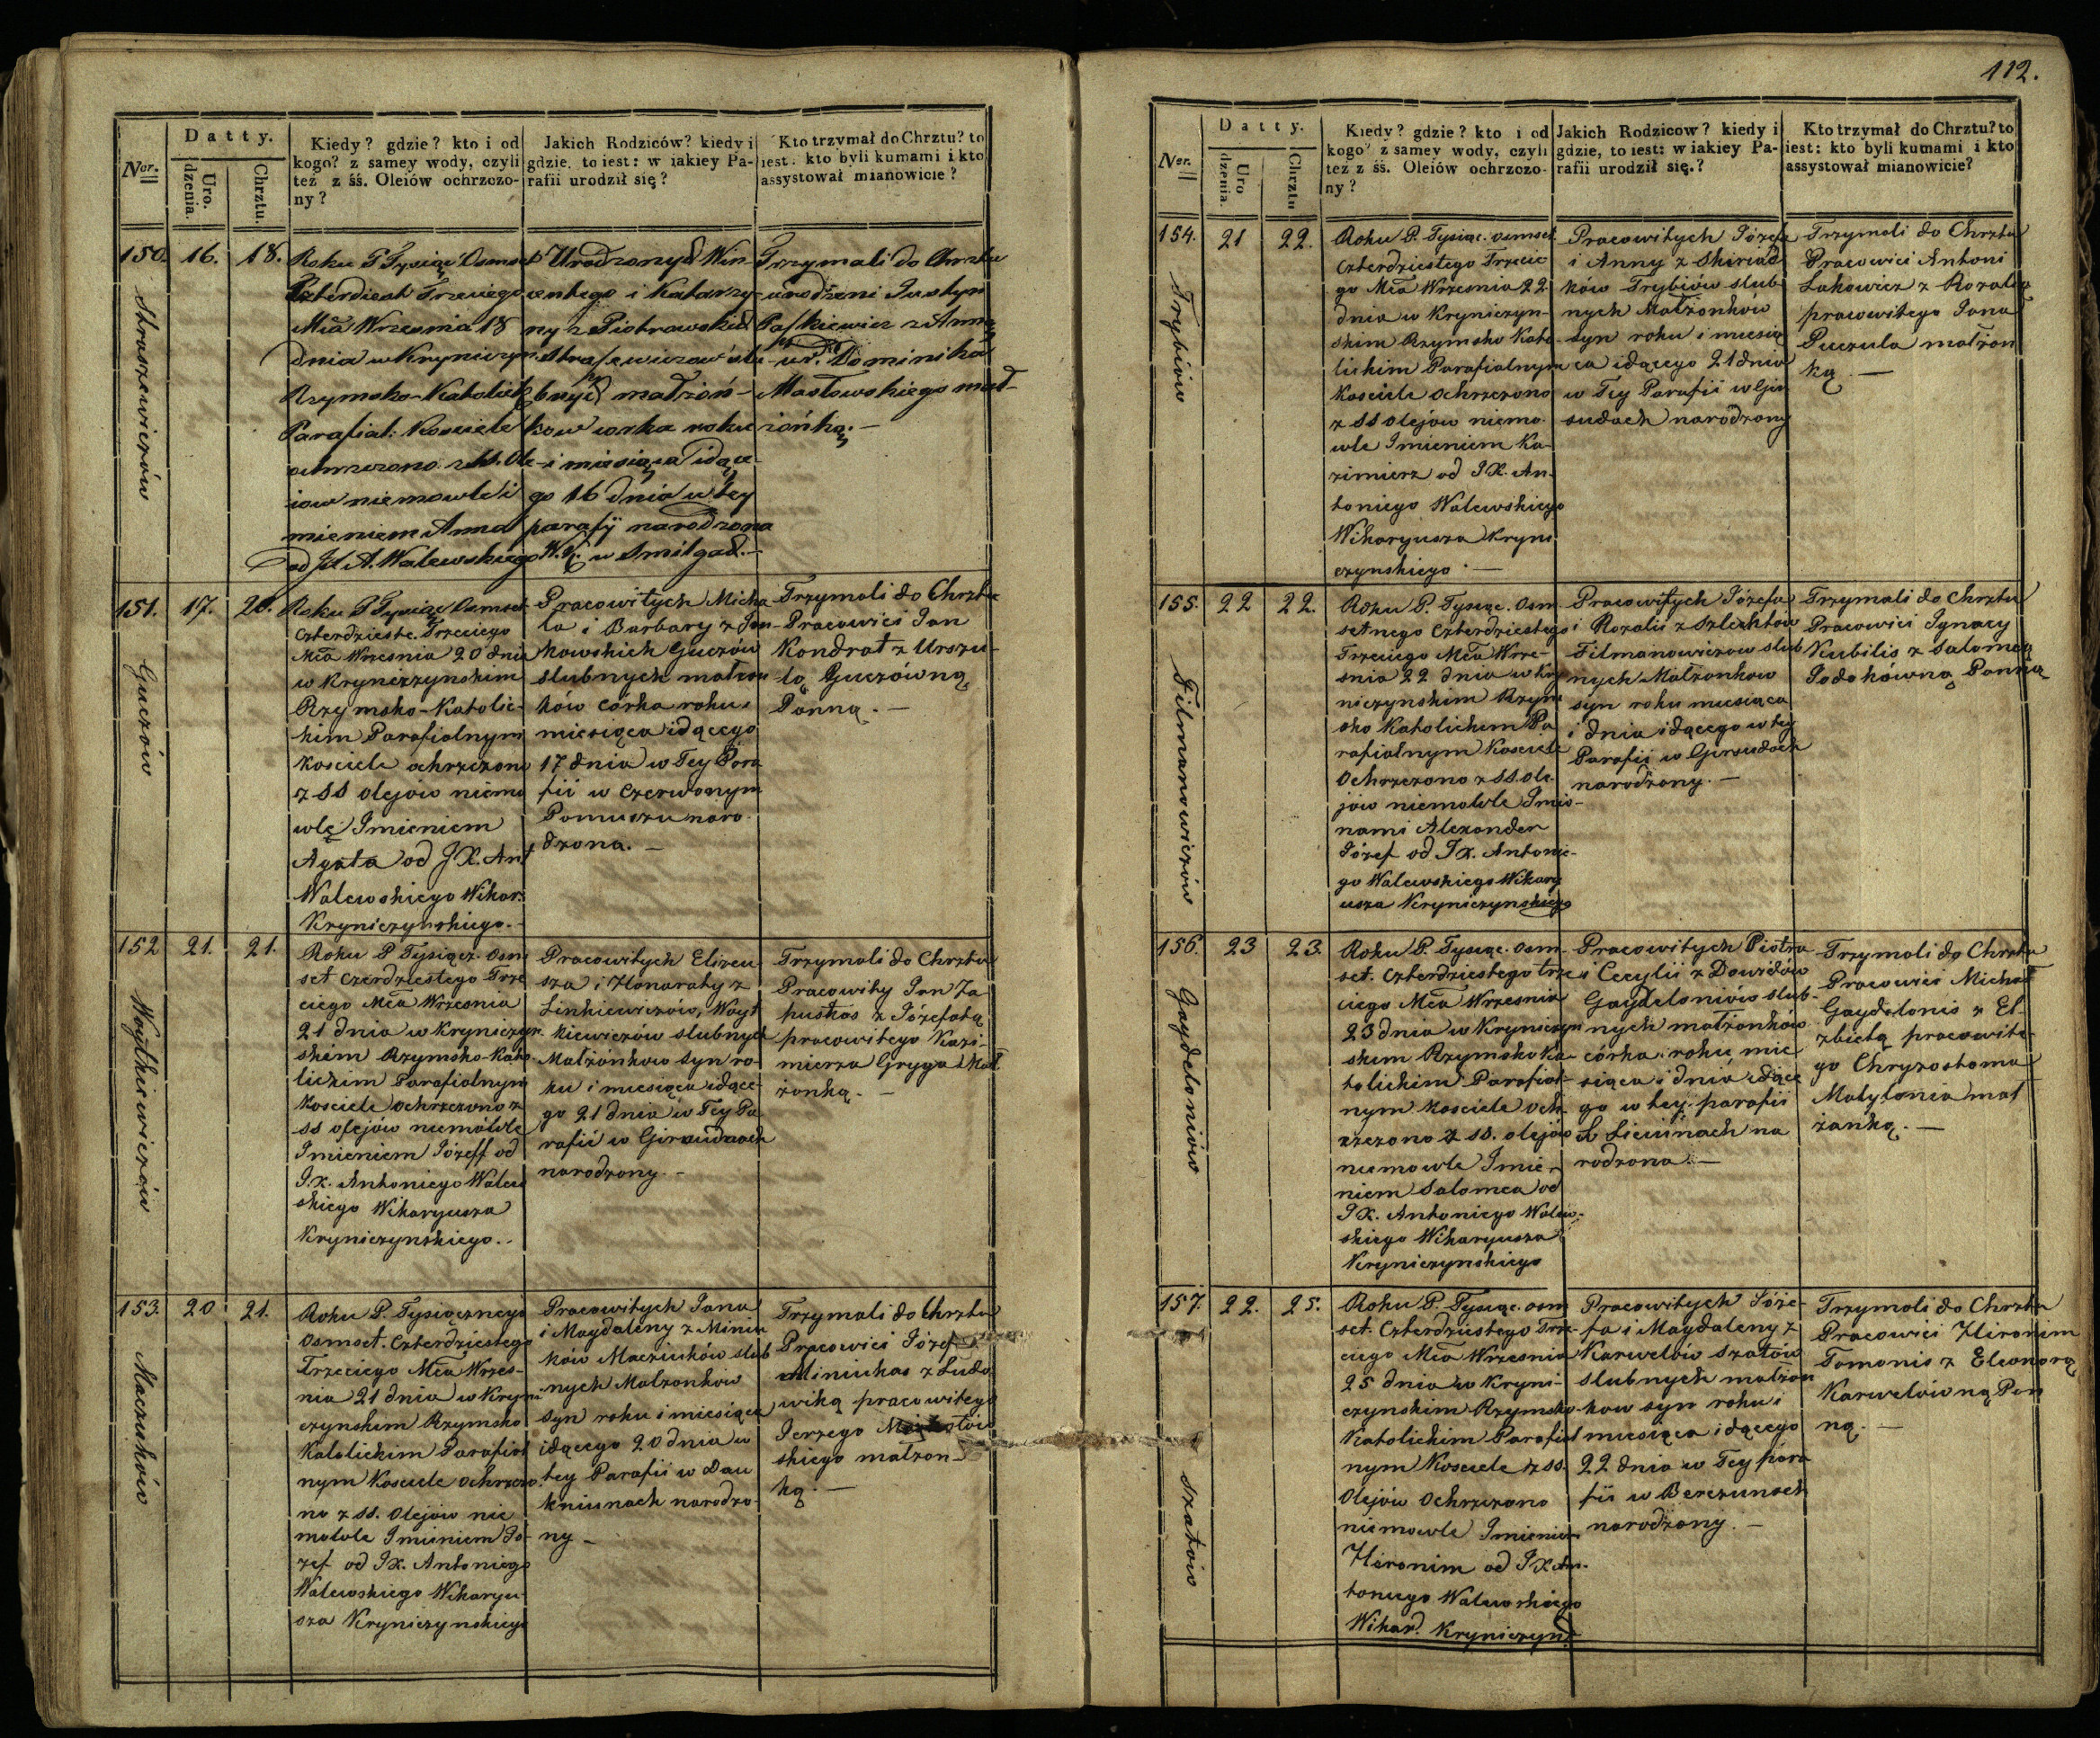 112.
Datty.
Ner.
Uro.
dzenia.
Chrztu.
Kiedy? gdzie? kto i od
kogo? z samey wody, czyli
też z śś. Oleiów ochrzczo-
ny?
Jakich Rodziców? kiedy i
gdzie, to iest: w iakiey Pa-
rafii urodził się?
Kto trzymał do Chrztu? to
iest: kto byli kumami i kto
assystował mianowicie?
150. 16. 18.
Straszewiczów
Roku P Tysiąc Osmset
Czterdziest Trzeciego
Mca Wrzesnia 18
dnia w Kryniczyn
Rzymsko-Katolick
Parafial: Kosciele
ochrzczono z SS. Ole-
iow niemowle i
mieniem Anna
od JX A. Walewskiego W. K.
Urodzonych Win
centego i Katarzy-
ny z Piotrowskich
Straszewiczow slu
bnych małżon-
kow corka roku
i miesiąca idące
go 16 dnia w tey
parafij narodzona
w Smilgach.-
Trzymali do Chrztu
urodzeni Justyn
Paszkiewicz z Anną
ur. Dominika
Masłowskiego mał-
żonką.-
151. 17. 20.
Guczów
Roku P Tysiąc Osmset
Czterdzieste. Trzeciego
Mca Wrzesnia 20 dnia
w Kryniczynskim
Rzymsko-Katolic-
kim Parafialnym
Kosciele ochrzczono
z SS olejow niemo
wlę Imieniem
Agata od JX. Ant
Walewskiego Wikar.
Kryniczynskiego.-
Pracowitych Micha
ła i Barbary z Jan-
kowskich Guczów
slubnych małżon
ków córka roku i
miesiąca idącego
17 dnia w Tey Para
fii w Czerwonym
Pomuszu naro
dzona.-
Trzymali do Chrztu
Pracowici Jan
Kondrat z Urszu-
lą Guczówną
Panną.-
152 21. 21.
Woytkiewiczów
Roku P Tysiącz. Osm
set Czerdziestego Trze
ciego Mca Wrzesnia
21 dnia w Kryniczyn
skim Rzymsko-Kato
lickim Parafialnym
Kosciele ochrzczono z
SS olejow niemowle
Imieniem Józeff od
J.X. Antoniego Walew
skiego Wikaryusza
Kryniczynskiego.-
Pracowitych Elizeu
sza i Honoraty z
Linkiewiczów, Woyt
kiewiczów slubnych
Małżonkow syn ro-
ku i miesiąca idące-
go 21 dnia w Tey Pa
rafii w Girsudach
narodzony.-
Trzymali do Chrztu
Pracowity Jan Za
pustas z Józefatą
pracowitego Kazi-
mierza Gryga Mał
żonką.-
153. 20 21.
Maczuków
Roku P. Tysiącznego
Osmset. Czterdziestego
Trzeciego Mca Wrzes-
nia 21 dnia w Kryni
czynskim Rzymsko
Katolickim Parafial
nym Kosciele ochrzczo
no z SS. Olejow nie
mowle Imieniem Jo-
zef od JX. Antoniego
Walewskiego Wikaryu-
sza Kryniczynskiego
Pracowitych Jana
i Magdaleny z Miniu
ków Maczuków slub
nych Malzonkow
Syn roku i miesiąca
idącego 20 dnia w
tey Parafii w Dau
kniunach narodzo-
ny -
Trzymali do Chrztu
Pracowici Józef
Miniukas z Ludo
wiką pracowitego
Jerzego
skiego małżon
ką.-
Datty.
Ner.
Uro
dzenia.
Chrztu
Kiedy? gdzie? kto i od
kogo? z samey wody, czyli
tez z śś. Oleiów ochrzczo-
ny?
Jakich Rodzicow? kiedy i
gdzie, to iest: w iakiey Pa-
rafii urodził się.?
Kto trzymał do Chrztu? to
iest: kto byli kumami i kto
assystował mianowicie?
154. 21 22.
Trybiów
Roku P. Tysiąc. osmset
czterdziestego Trzecie
go Mca Wrzesnia 22
dnia w Kryniczyn-
skim Rzymsko Kato
lickim Parafialnym
Kosciele ochrzczono
z SS olejow niemo
wle Imieniem Ka-
zimierz od JX. An-
toniego Walewskiego
Wikaryusza Kryni
czynskiego.-
Pracowitych Józefa
i Anny z Skiriad
ków Trybiów slub
nych Małżonków
syn roku i miesią
ca idącego 21 dnia
w Tey Parafii w Gir
sudach narodzony
Trzymali do Chrztu
Pracowici Antoni
Lukowicz z Rozalią
pracowitego Jana
Puczula małżon
ką.-
155. 22 22.
Filmanowiczów
Roku P. Tysiąc. Osm
setnego Czterdziestego
Trzeciego Mca Wrze-
snia 22 dnia w Kry
niczynskim Rzym
sko Katolickim Pa
rafialnym Kosciele
Ochrzczono z SS. ole
jów niemowle Imio-
nami Alexander
Józef od JX. Antonie-
go Walewskiego Wikary
usza Kryniczynskiego
Pracowitych Józefa
i Rozalii z Szlechtow
Filmanowiczow slub
nych Małzonkow
syn roku miesiąca
i dnia idącego w tey
Parafii w Girsudach
narodzony.-
Trzymali do Chrztu
Pracowici Ignacy
Kubilis z Salomeą
Jodokówną Panną
156. 23 23.
Gaydeloniów
Roku P. Tysiąc. Osm-
set. Czterdziestego trze
ciego Mca Wrzesnia
23 dnia w Kryniczyn
skim Rzymsko Ka-
tolickim Parafial-
nym Kosciele Och-
rzczono z SS. olejów
niemowle Imie-
niem Salomea od
JX. Antoniego Walew-
skiego Wikaryusza
Kryniczynskiego
Pracowitych Piotra
i Cecylii z Dowidów
Gaydeloniów slub-
nych małżonków
córka roku, mie
siąca i dnia idące
go w tey parafii
w Liciunach na
rodzona.-
Trzymali do Chrztu
Pracowici Michał
Gaydelonis z El-
zbietą pracowite-
go Chryzostoma
Matylonia mał
żanką.-
157. 22. 25.
Szatów
Roku P. Tysiąc. osm
set. Czterdziestego Trze-
ciego Mca Wrzesnia
25 dnia w Kryni-
czynskim Rzymsko
Katolickim Parafial
nym Kosciele z SS.
Olejów Ochrzczono
niemowle Imieniem
Hieronim od JX An-
toniego Walewskiego
Wikar. Kryniczyns.
Pracowitych Józe-
fa i Magdaleny z
Karwelów Szatów
slubnych małżon
kow syn roku i
miesiąca idącego
22 dnia w Tey para
fii w Berczunach
narodzony.-
Trzymali do Chrztu
Pracowici Hironim
Tomonis z Eleonorą
Karwelówną Pan
ną.-